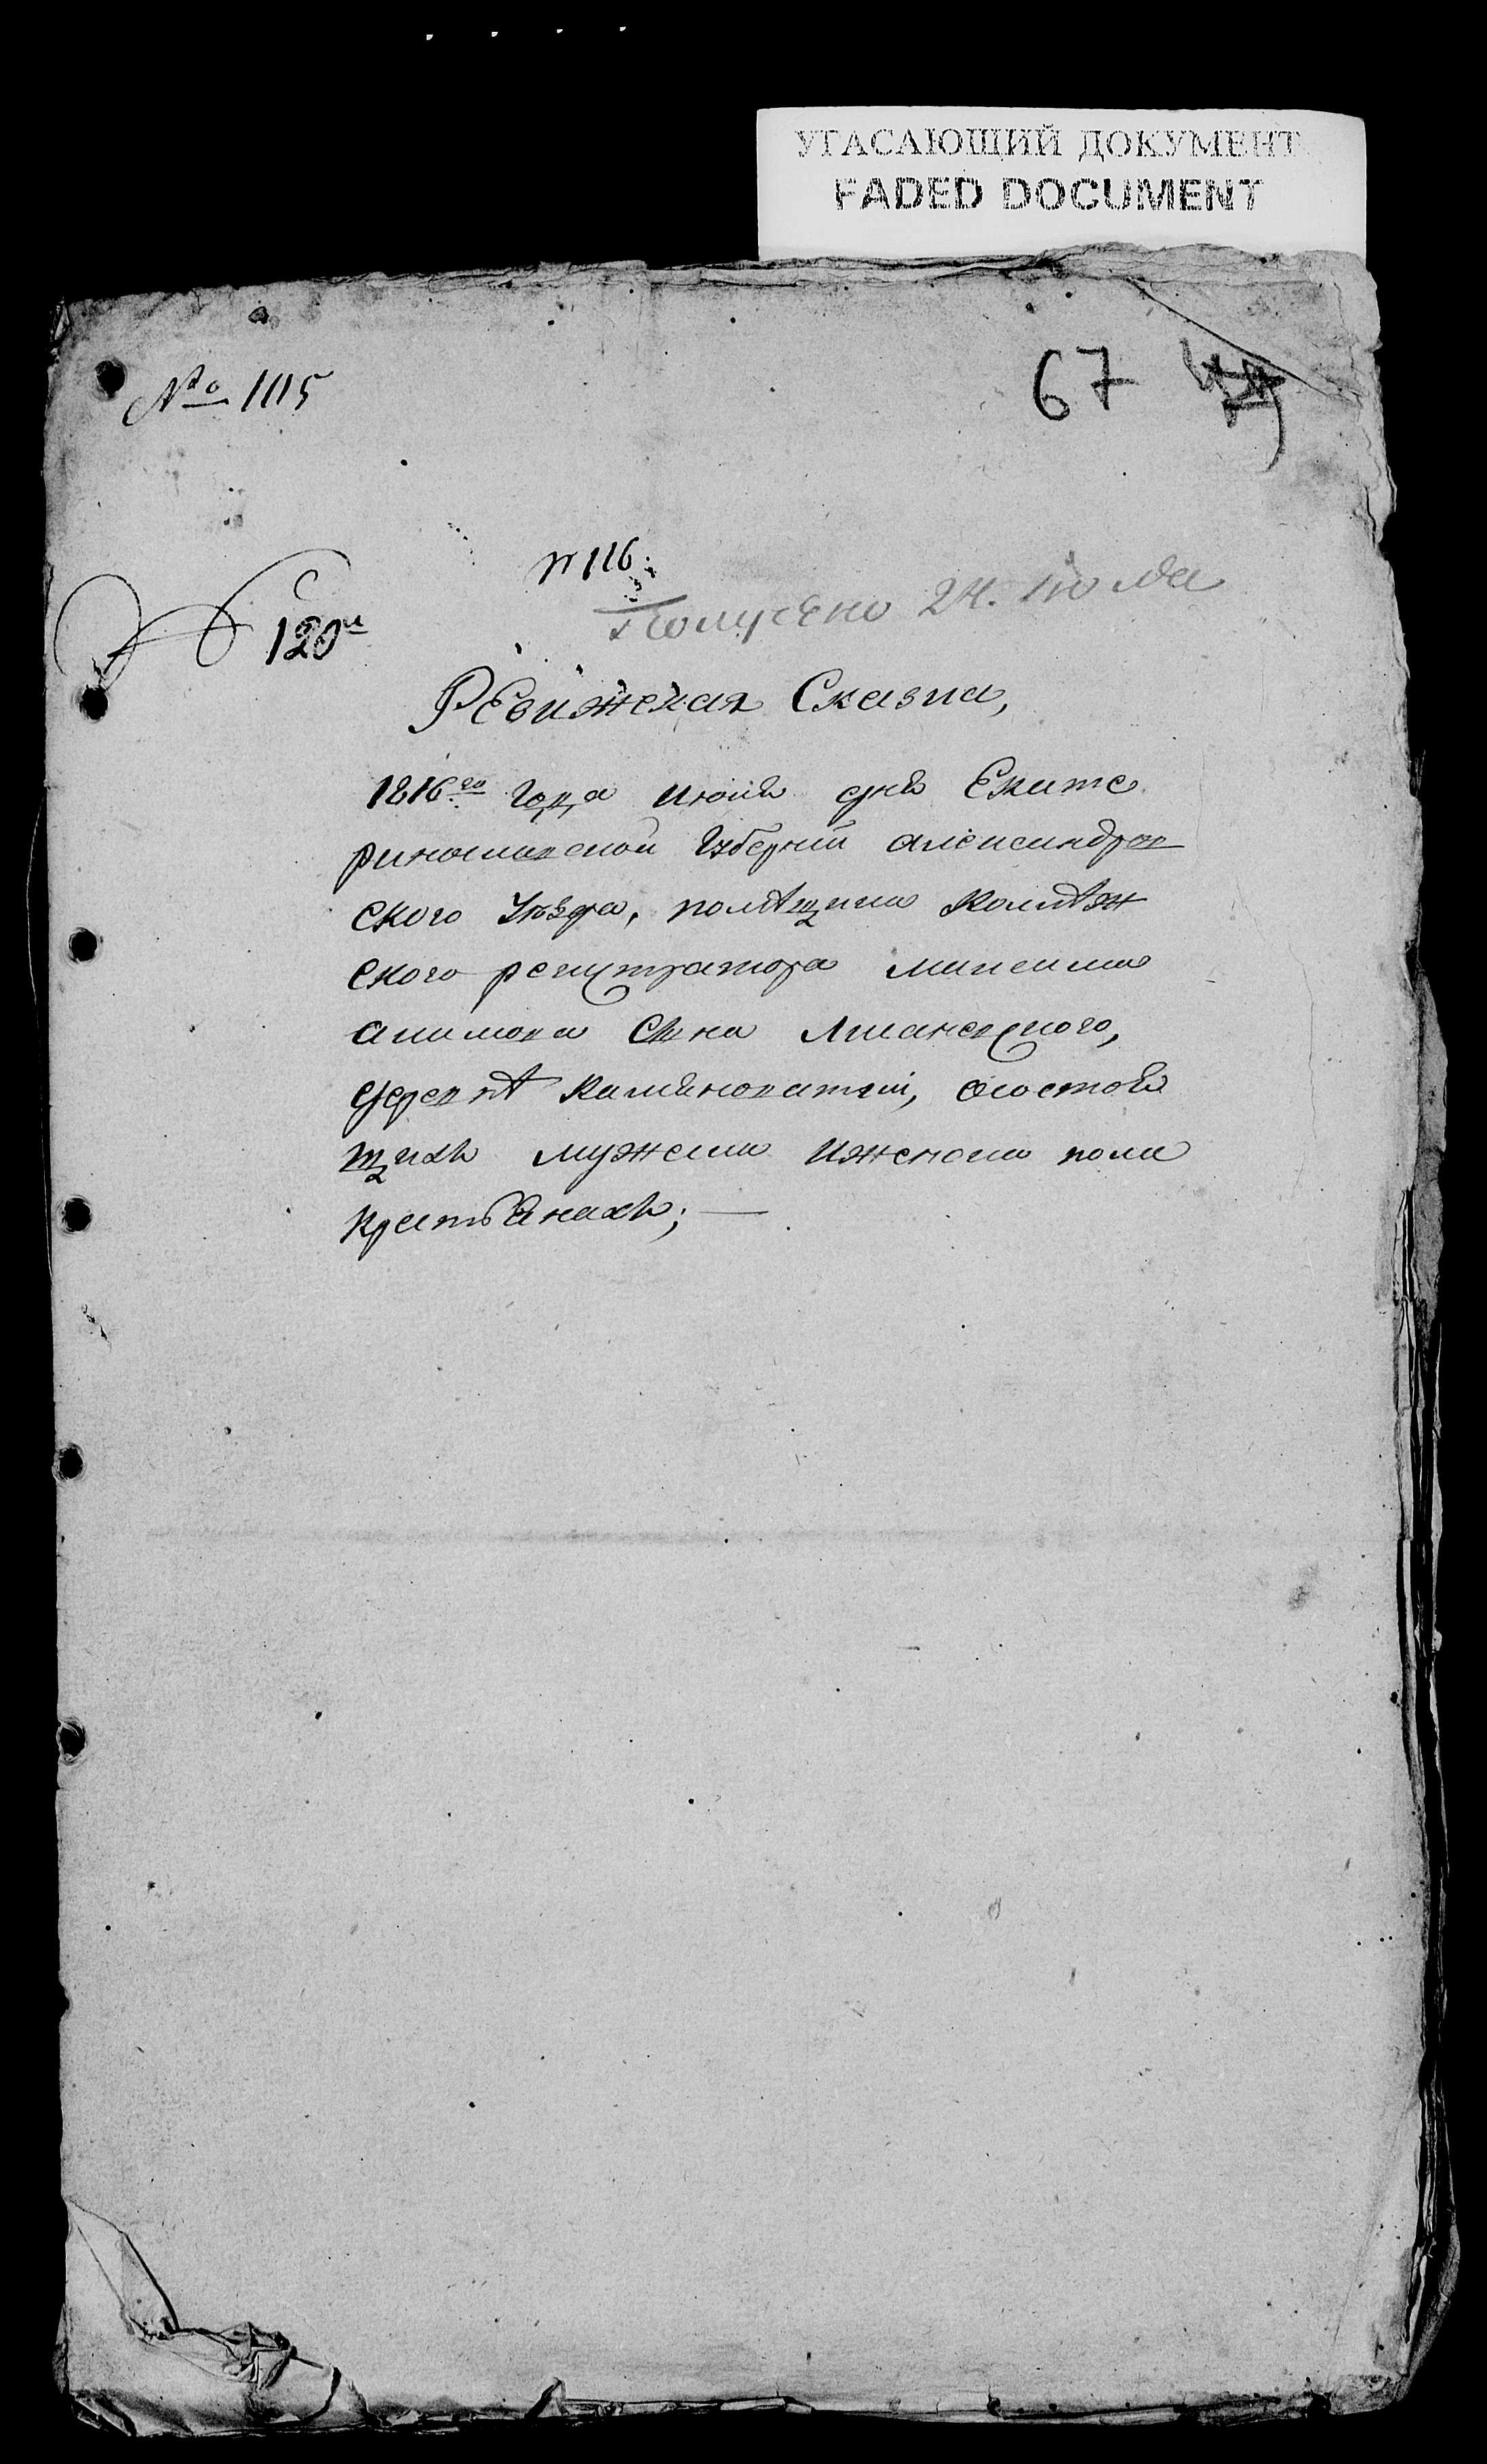 УГАСАЮЩИЙ ДОКУМЕНТ
FADED DOCUMENT
№ 1115
67
№ 116
120й
Получено 24. Июля
Ревижская Сказка,
1816го Года Июля дня Екате
ринославской Губернии александров
ского Уѣзда, помѣщика Колѣж
ского регистратора Максима
акимова сына Лисаневского,
деревнѣ Калиноватки, осостоя
щихъ мужеска иженска пола
крестьянахъ;